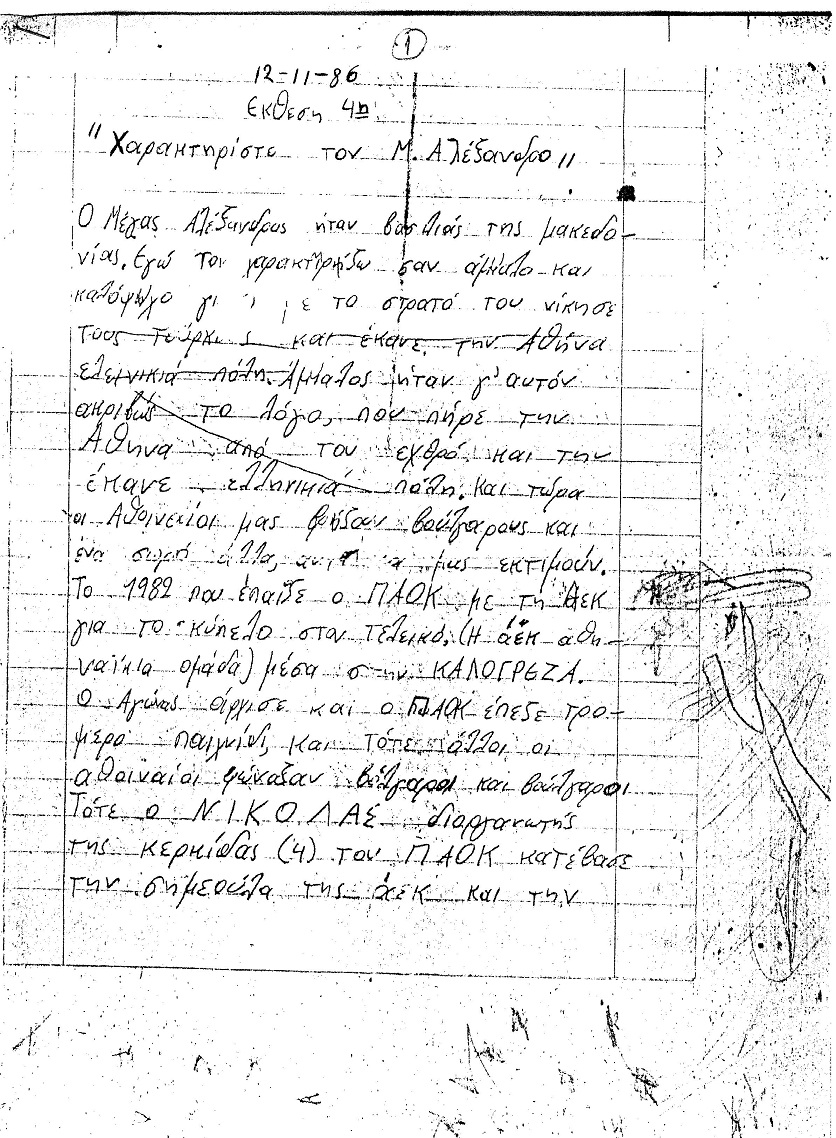 1
12-11-86
Εκθεση 4η
"Χαρακτηρίστε τον Μ. Αλέξανδρο"
Ο Μέγας Αλέξανδρος ήταν βασιλιάς της μακεδο-
νίας. Εγώ τον χαρακτηρίζω σαν άμμαλο και
καλόψυχο με το στρατό του νίκησε
τους τούρκους και έκανε την Αθήνα
ελεινικιά πόλη. Άμμαλος ήταν γι' αυτόν
ακριβώς το λόγο, που πήρε την
Αθηνα από τον εχθρό και την
έκανε ελληνικιά πόλη. Και τώρα
οι Αθοινεκιοι μας βρήζουν βούλγαρους και
ένα σωρό άλλα, μας εκτιμούν.
Το 1982 που έπαιξε ο ΠΑΟΚ με τη ΑΕΚ
για το κύπελο στον τελεικό. (Η άεκ αθη-
ναϊκια ομάδα) μέσα στην ΚΑΛΟΓΡΕΖΑ.
Ο Αγώνας άρχισε και ο ΠΑΟΚ έπεζε τρο-
μερό παιχνίδι και τότε άλλοι οι
αθοιναίοι φώναξαν βούλγαροι και βούλγαροι
Τότε ο ΝΙΚΟΛΑΣ διοργανωτής
της κερκίδας (4) του ΠΑΟΚ κατέβασε
την σημεούλα της άεκ και την